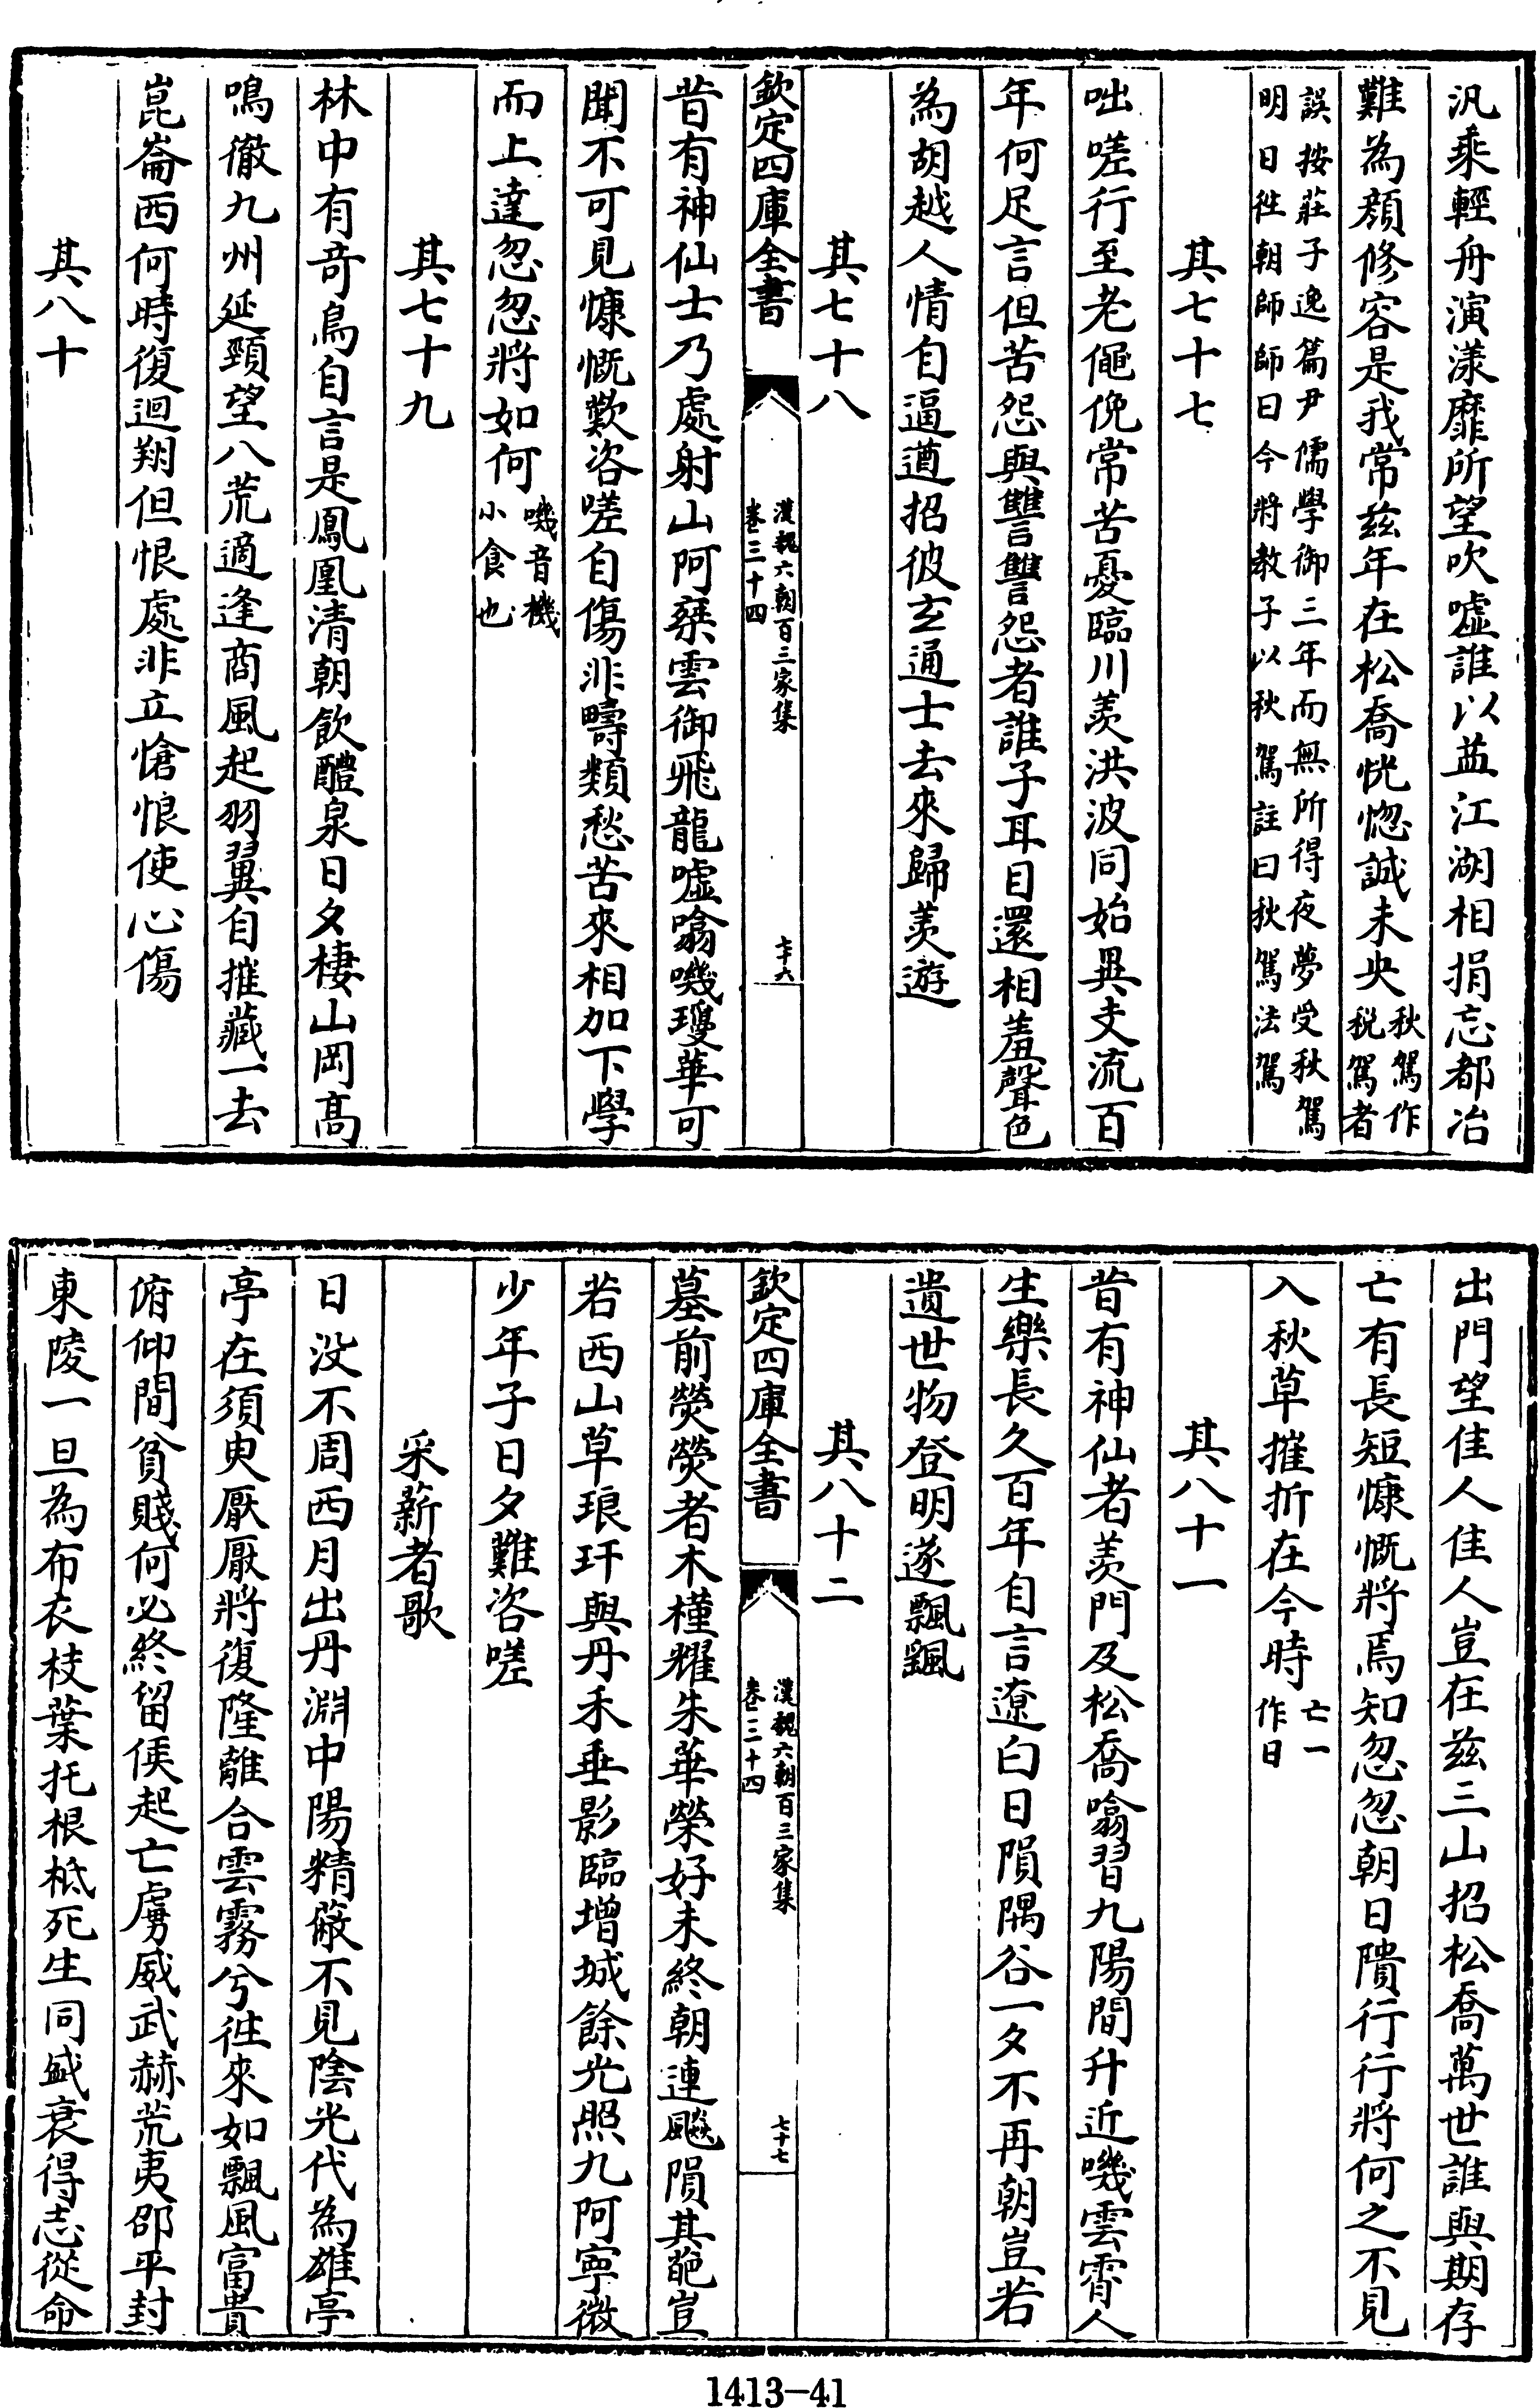 汎乘輕舟演漾靡所望吹噓誰以益江湖相捐忘都冶
難為顔修容是我常兹年在松喬恍惚誠未央秋駕作税駕者
誤按莊子逸篇尹儒學御三年而無所得夜夢受秋駕
明日徃朝師師曰今將教子以秋駕註曰秋駕法駕
其七十七
咄嗟行至老僶俛常苦憂臨川羨洪波同始異支流百
年何足言但苦怨與讐讐怨者誰子耳目還相羞聲色
為胡越人情自逼遒招彼玄通士去來歸羨遊
其七十八
欽定四庫全書
漢魏六朝百三家集
卷三十四
七十六
昔有神仙士乃處射山阿乗雲御飛龍噓噏嘰瓊華可
聞不可見慷慨歎咨嗟自傷非疇類愁苦來相加下學
而上達忽忽將如何嘰音機小食也
其七十九
林中有竒鳥自言是鳳凰清朝飲醴泉日夕棲山岡髙
鳴徹九州延頸望八荒適逢商風起羽翼自摧藏一去
崑崙西何時復迴翔但恨處非立愴悢使心傷
其八十
出門望佳人佳人豈在兹三山招松喬萬世誰與期存
亡有長短慷慨將焉知忽忽朝日隤行行將何之不見
入秋草摧折在今時亡一作日
其八十一
昔有神仙者羨門及松喬噏習九陽間升近嘰雲霄人
生樂長久百年自言遼白日隕隅谷一夕不再朝豈若
遺世物登明遂飄颻
其八十二
欽定四庫全書
漢魏六朝百三家集
卷三十四
七十七
墓前熒熒者木槿耀朱華榮好未終朝連飈隕其葩豈
若西山草琅玕與丹禾垂影臨增城餘光照九阿寧微
少年子日夕難咨嗟
采薪者歌
日没不周西月出丹淵中陽精蔽不見隂光代為雄亭
亭在須臾厭厭將復隆離合雲霧兮徃來如飄風富貴
俯仰間貧賤何必終留侯起亡虜威武赫荒夷邵平封
東陵一旦為布衣枝葉托根柢死生同盛衰得志從命
1413-41